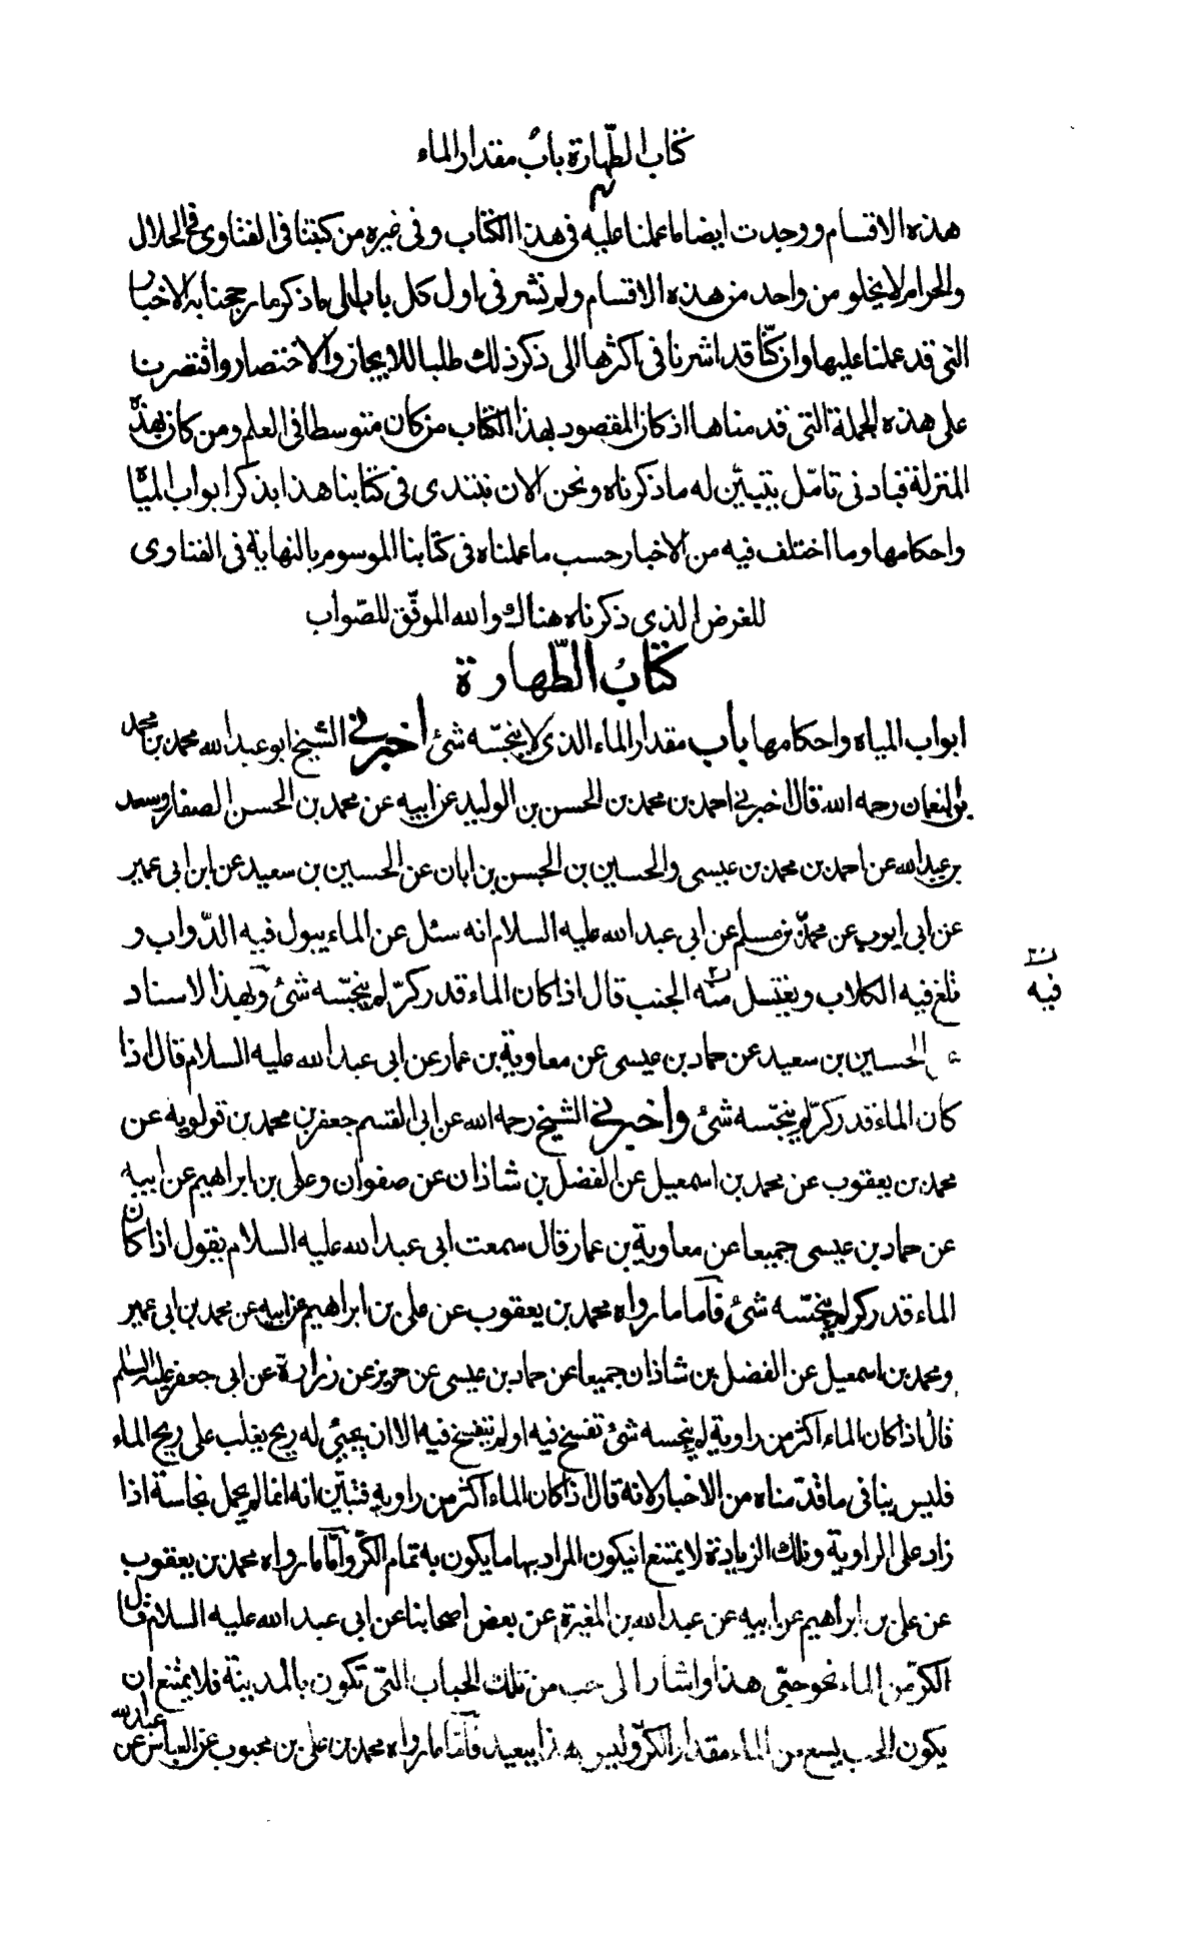 كتاب الطّهارة باب مقدار الماء
٣
هذه الاقسام ووجدت ايضا ما عملنا عليه فى هذا الكتاب وفى غيره من كتبنا فى الفتاوى فى الحلال
والحرام لا يخلو من واحد من هذه الاقسام ولم نشر فى اول كل باب الى ما ذكر ما رجحنا به الاخبار
التى قد عملنا عليها وان كنّا قد اشرنا فى اكثرها الى ذكر ذلك طلبا للايجاز والاختصار واقتصرنا
على هذه الجملة التى قدمناها اذ كان المقصود بهذا الكتاب من كان متوسطا فى العلم ومن كان بهذه
المنزلة فبادنى تامّل يتبيّن له ما ذكرناه ونحن الان نبتدى فى كتابنا هذا بذكر ابواب المياه
واحكامها وما اختلف فيه من الاخبار حسب ما عملناه فى كتابنا الموسوم بالنهاية فى الفتاوى
للغرض الذى ذكرناه هناك والله الموفّق للصّواب
كتابُ الطّهارة
ابواب المياه واحكامها باب مقدار الماء الذى لا ينجّسه شئ اخبرنى الشيخ ابو عبد الله محمد بن محمد
بن النعمان رحمه الله قال اخبرنى احمد بن محمد بن الحسن بن الوليد عن ابيه عن محمد بن الحسن الصفار وسعد
بن عبد الله عن احمد بن محمد بن عيسى والحسين بن الحسن بن ابان عن الحسين بن سعيد عن ابن ابى عمير
عن ابى ايوب عن محمّد بن مسلم عن ابى عبد الله عليه السلام انه سئل عن الماء يبول فيه الدّواب و
تلغ فيه الكلاب ويغتسل منه الجنب قال اذا كان الماء قدر كرّ لم ينجّسه شئ وبهذا الاسناد
فيه
عن الحسين بن سعيد عن حماد بن عيسى عن معاوية بن عمار عن ابى عبد الله عليه السلام قال اذا
كان الماء قدر كرّ لم ينجّسه شئ واخبرنى الشيخ رحمه الله عن ابى القسم جعفر بن محمد بن قولويه عن
محمد بن يعقوب عن محمد بن اسمعيل عن الفضل بن شاذان عن صفوان وعلى بن ابراهيم عن ابيه
عن حماد بن عيسى جميعا عن معاوية بن عمار قال سمعت ابى عبد الله عليه السلام يقول اذا كان
الماء قدر كر لم ينجّسه شئ فاما ما رواه محمد بن يعقوب عن على بن ابراهيم عن ابيه عن محمد بن ابى عمير
ومحمد بن اسمعيل عن الفضل بن شاذان جميعا عن حماد بن عيسى عن حريز عن زرارة عن ابى جعفر عليه السلم
قال اذا كان الماء اكثر من راوية لم ينجسه شئ تفسخ فيه او لم يتفسخ فيه الا ان يجيئ له ريح يغلب على ريح الماء
فليس ينافى ما قدّمناه من الاخبار لانه قال اذا كان الماء اكثر من راوية فتبيّن انه انما لم يحمل نجاسة اذا
زاد على الراوية وتلك الزيادة لا يمتنع ان يكون المراد بها ما يكون به تمام الكرّ وامّا ما رواه محمد بن يعقوب
عن على بن ابراهيم عن ابيه عن عبد الله بن المغيرة عن بعض اصحابنا عن ابى عبد الله عليه السلام قال
الكرّ من الماء نحو حبّى هذا واشار الى حب من تلك الحباب التى تكون بالمدينة فلا يمتنع ان
يكون الحب يسع من الماء مقدار الكرّ وليس هذا ببعيد فامّا ما رواه محمد بن على بن محبوب عن العباس عن عبد الله